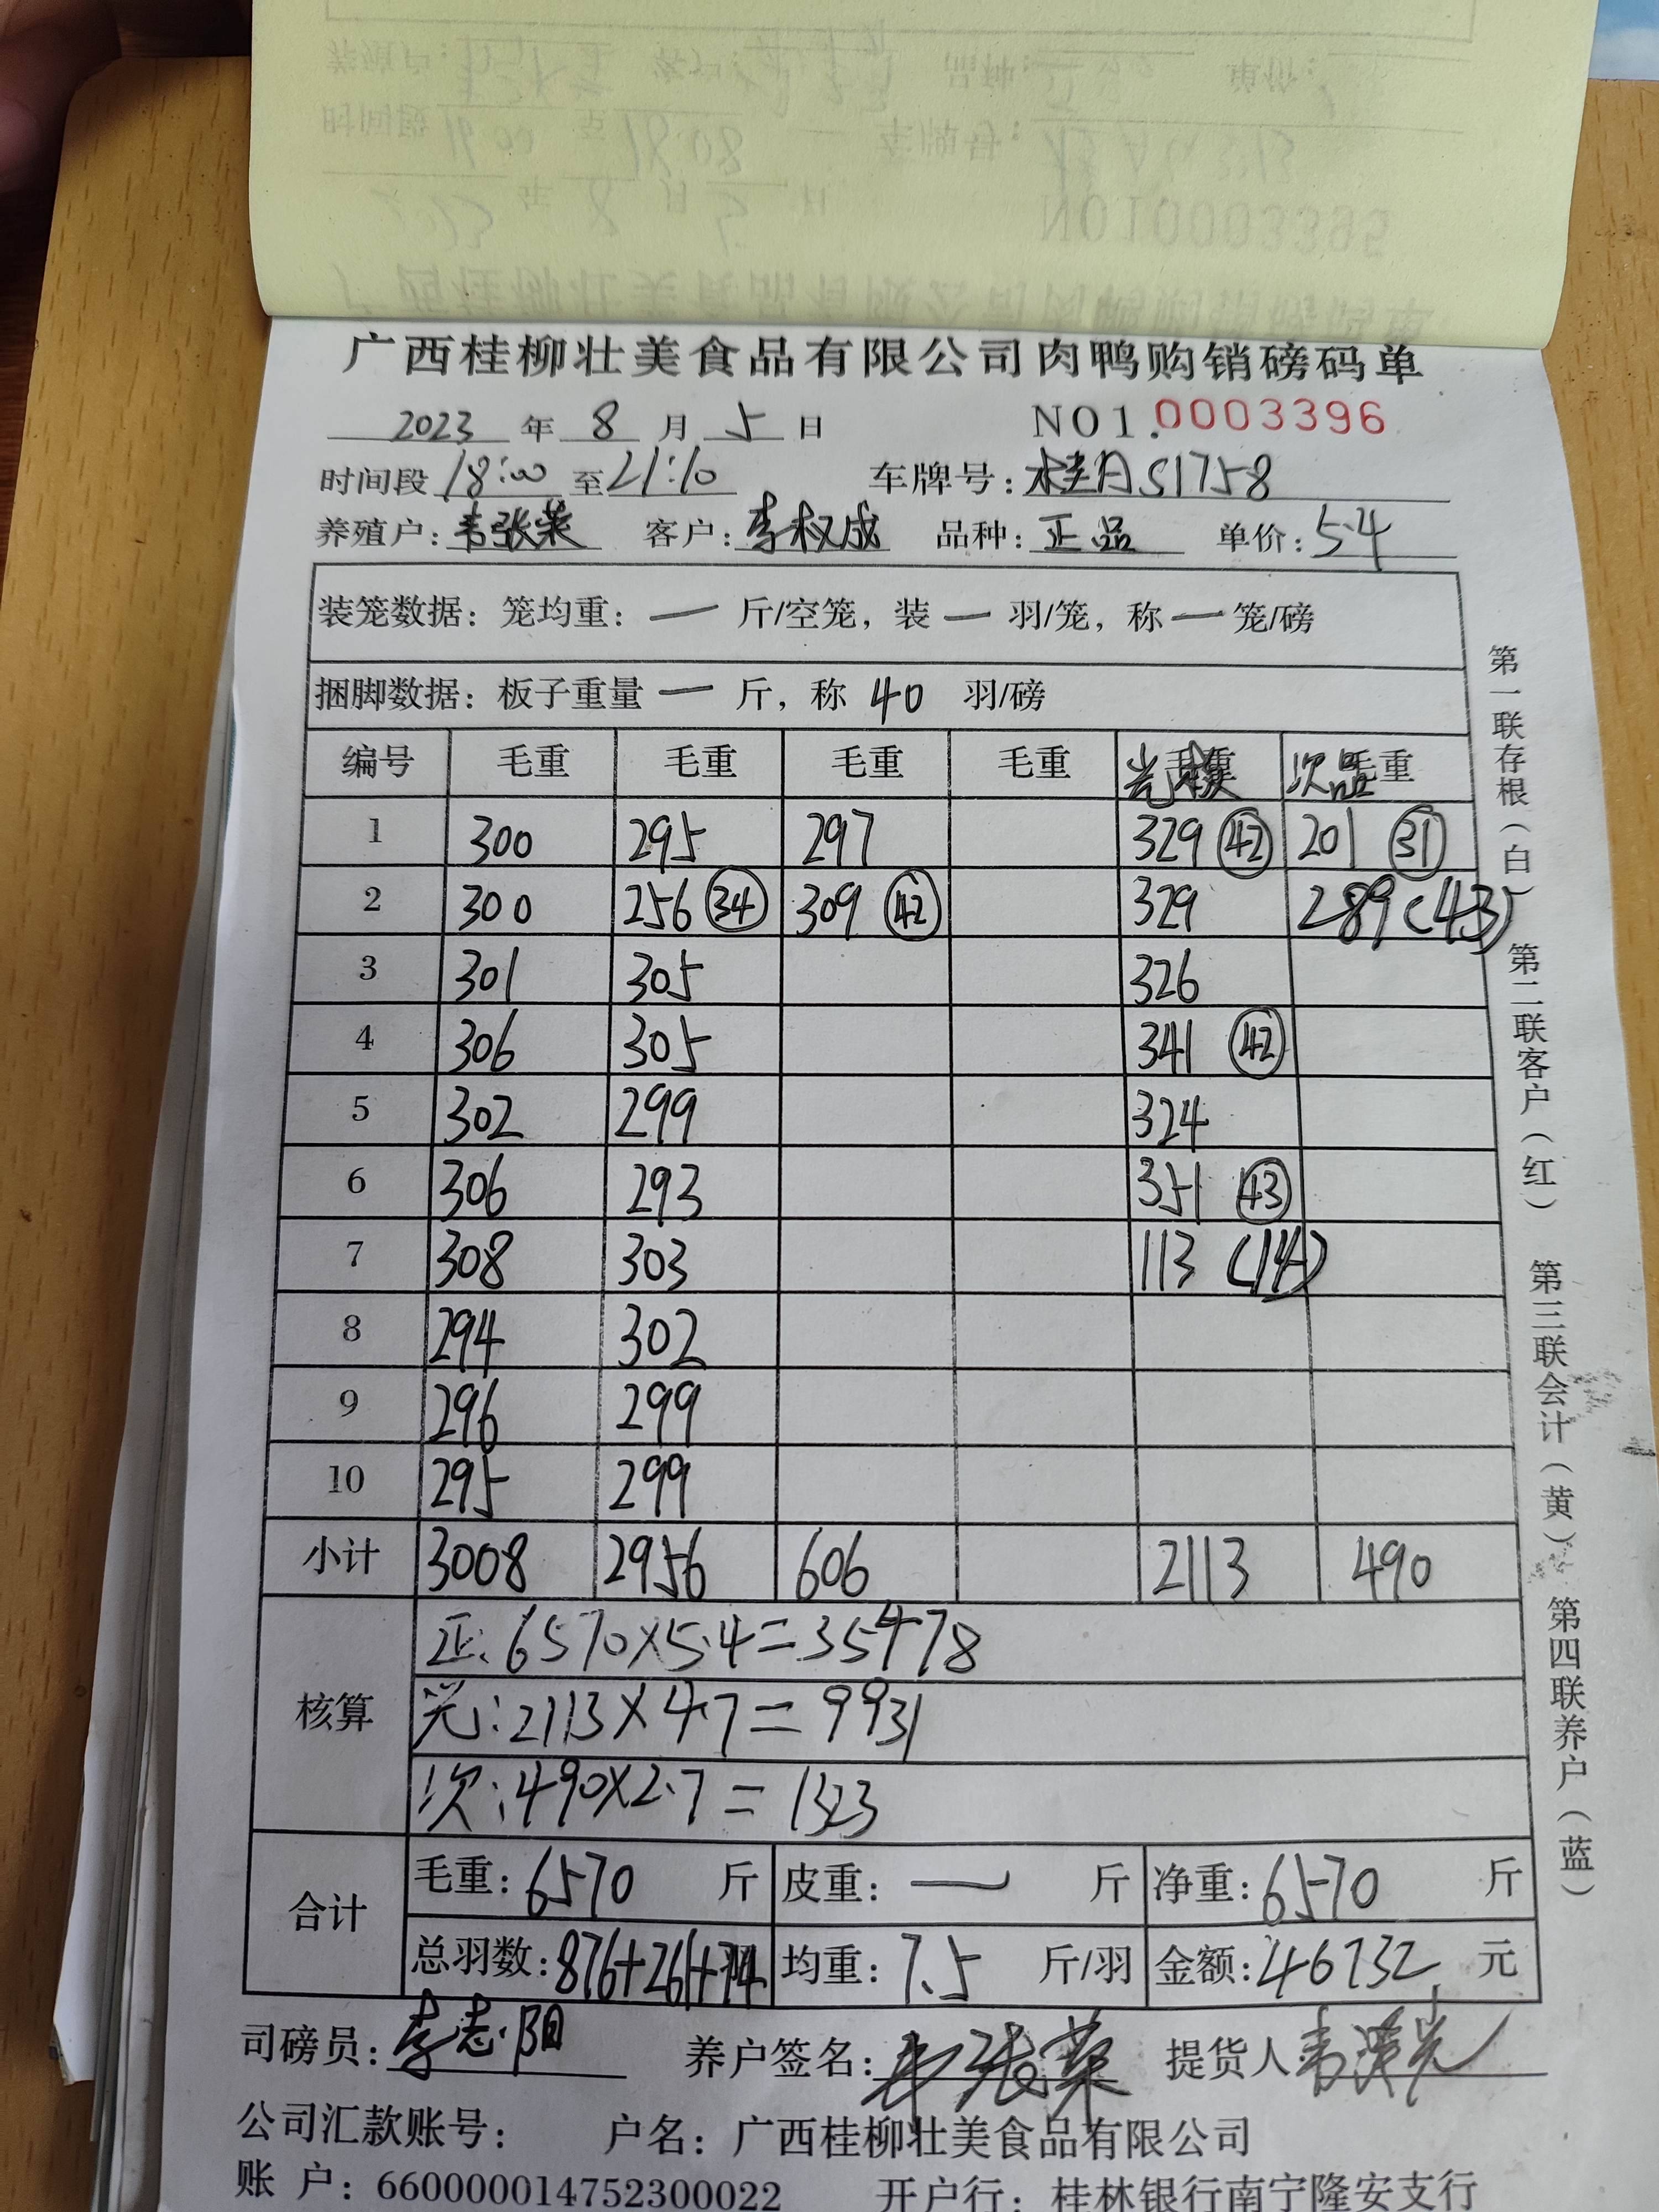 广西桂柳壮美食品有限公司肉鸭购销磅码单
2023 年 8 月 5 日 NO1.0003396
时间段 18:00 至 21:10 车牌号: 桂AS1758
养殖户: 韦张荣 客户: 李权成 品种: 正品 单价: 5.4
装笼数据: 笼均重: — 斤/空笼, 装 — 羽/笼, 称 — 笼/磅
捆脚数据: 板子重量 — 斤, 称 40 羽/磅
编号 毛重 毛重 毛重 毛重 毛重 次品 毛重
1 300 295 297 329 (42) 201 (31)
2 300 256 (34) 309 (42) 329 289 (43)
3 301 305 326
4 306 305 341 (42)
5 302 299 324
6 306 293 351 (43)
7 308 303 113 (14)
8 294 302
9 296 299
10 295 299
小计 3008 2956 606 2113 490
核算
正: 6570×5.4=35478
光: 2113×4.7=9931
次: 490×2.7=1323
合计
毛重: 6570 斤 皮重: — 斤 净重: 6570 斤
总羽数: 876+261+74 均重: 7.5 斤/羽 金额: 46732 元
司磅员: 李志阳 养户签名: 韦张荣 提货人
公司汇款账号: 户名: 广西桂柳壮美食品有限公司
账 户: 660000014752300022 开户行: 桂林银行南宁隆安支行
第一联存根(白) 第二联客户(红) 第三联会计(黄) 第四联养户(蓝)